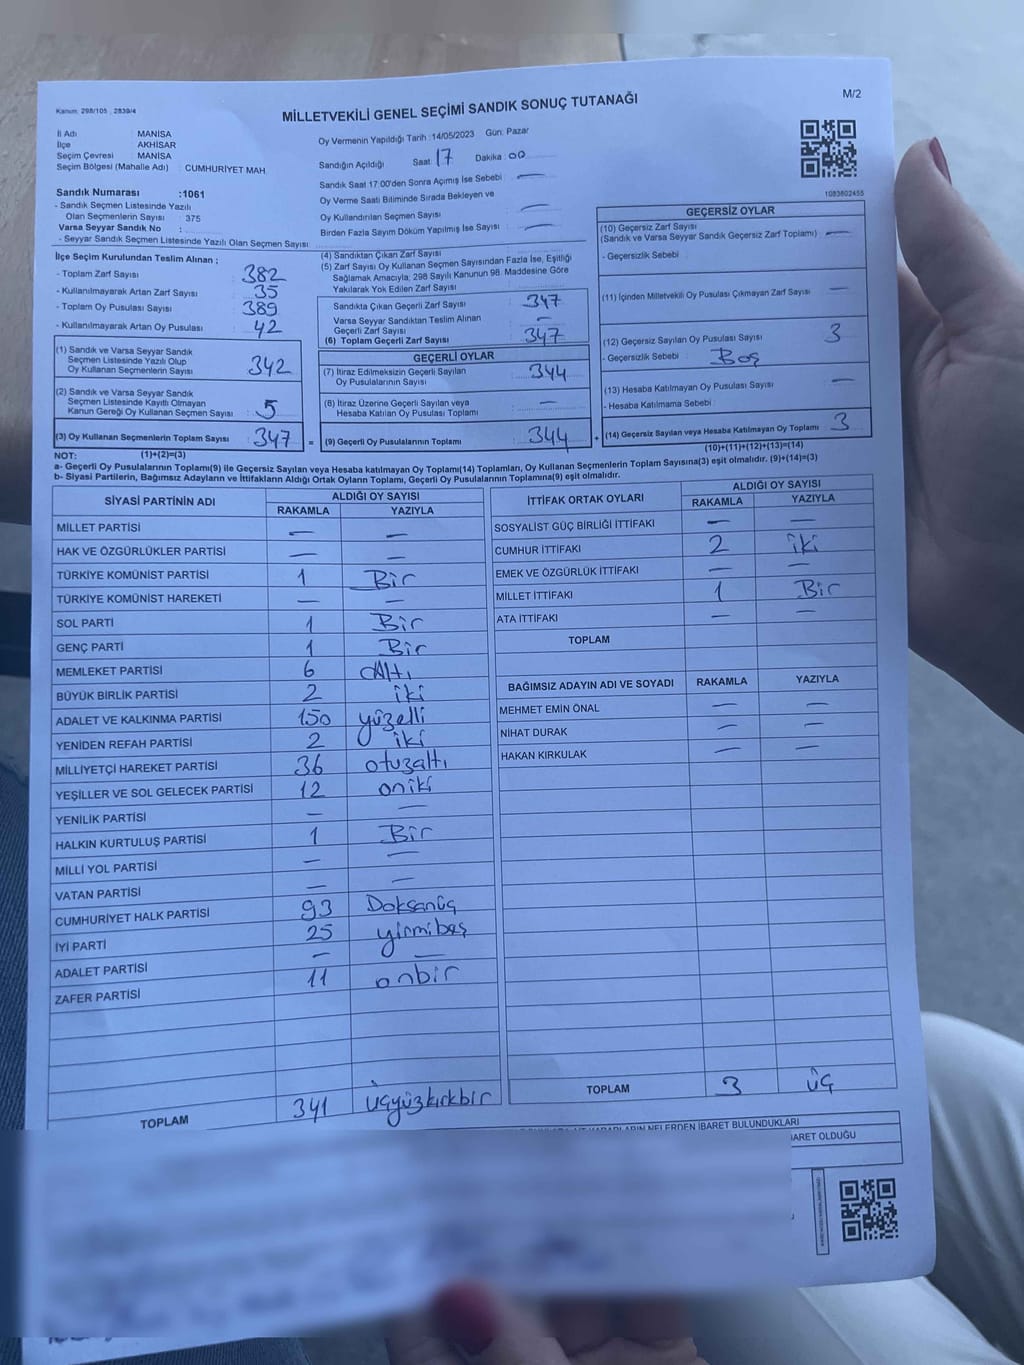 Kanun: 298/105 , 2839/4
MİLLETVEKİLİ GENEL SEÇİMİ SANDIK SONUÇ TUTANAĞI
M/2
İl Adı : MANİSA
İlçe : AKHİSAR
Seçim Çevresi : MANİSA
Seçim Bölgesi (Mahalle Adı) : CUMHURİYET MAH.
Oy Vermenin Yapıldığı Tarih :14/05/2023 Gün: Pazar
Sandığın Açıldığı Saat 17 Dakika : 00
Sandık Saat 17:00'den Sonra Açımış İse Sebebi : —
Oy Verme Saati Bitiminde Sırada Bekleyen ve
Oy Kullandırılan Seçmen Sayısı : —
Birden Fazla Sayım Döküm Yapılmış İse Sayısı : —
Sandık Numarası :1061
- Sandık Seçmen Listesinde Yazılı
Olan Seçmenlerin Sayısı : 375
Varsa Seyyar Sandık No :
- Seyyar Sandık Seçmen Listesinde Yazılı Olan Seçmen Sayısı :
1083602455
İlçe Seçim Kurulundan Teslim Alınan ;
- Toplam Zarf Sayısı : 382
- Kullanılmayarak Artan Zarf Sayısı : 35
- Toplam Oy Pusulası Sayısı : 389
- Kullanılmayarak Artan Oy Pusulası : 42
(1) Sandık ve Varsa Seyyar Sandık
Seçmen Listesinde Yazılı Olup
Oy Kullanan Seçmenlerin Sayısı : 342
(2) Sandık ve Varsa Seyyar Sandık
Seçmen Listesinde Kayıtlı Olmayan
Kanun Gereği Oy Kullanan Seçmen Sayısı : 5
(3) Oy Kullanan Seçmenlerin Toplam Sayısı : 347 =
(4) Sandıktan Çıkan Zarf Sayısı :
(5) Zarf Sayısı Oy Kullanan Seçmen Sayısından Fazla İse, Eşitliği
Sağlamak Amacıyla; 298 Sayılı Kanunun 98. Maddesine Göre
Yakılarak Yok Edilen Zarf Sayısı :
Sandıkta Çıkan Geçerli Zarf Sayısı : 347
Varsa Seyyar Sandıktan Teslim Alınan
Geçerli Zarf Sayısı : —
(6) Toplam Geçerli Zarf Sayısı : 347
GEÇERLİ OYLAR
(7) İtiraz Edilmeksizin Geçerli Sayılan
Oy Pusulalarının Sayısı : 344
(8) İtiraz Üzerine Geçerli Sayılan veya
Hesaba Katılan Oy Pusulası Toplamı : —
(9) Geçerli Oy Pusulalarının Toplamı : 344 +
GEÇERSİZ OYLAR
(10) Geçersiz Zarf Sayısı
(Sandık ve Varsa Seyyar Sandık Geçersiz Zarf Toplamı) : —
- Geçersizlik Sebebi :
(11) İçinden Milletvekili Oy Pusulası Çıkmayan Zarf Sayısı : —
(12) Geçersiz Sayılan Oy Pusulası Sayısı : 3
- Geçersizlik Sebebi : Boş
(13) Hesaba Katılmayan Oy Pusulası Sayısı : —
- Hesaba Katılmama Sebebi :
(14) Geçersiz Sayılan veya Hesaba Katılmayan Oy Toplamı : 3
NOT: (1)+(2)=(3)
(10)+(11)+(12)+(13)=(14)
a- Geçerli Oy Pusulalarının Toplamı(9) ile Geçersiz Sayılan veya Hesaba katılmayan Oy Toplamı(14) Toplamları, Oy Kullanan Seçmenlerin Toplam Sayısına(3) eşit olmalıdır. (9)+(14)=(3)
b- Siyasi Partilerin, Bağımsız Adayların ve İttifakların Aldığı Ortak Oyların Toplamı, Geçerli Oy Pusulalarının Toplamına(9) eşit olmalıdır.
SİYASİ PARTİNİN ADI ALDIĞI OY SAYISI
RAKAMLA YAZIYLA
MİLLET PARTİSİ — —
HAK VE ÖZGÜRLÜKLER PARTİSİ — —
TÜRKİYE KOMÜNİST PARTİSİ 1 Bir
TÜRKİYE KOMÜNİST HAREKETİ — —
SOL PARTİ 1 Bir
GENÇ PARTİ 1 Bir
MEMLEKET PARTİSİ 6 Altı
BÜYÜK BİRLİK PARTİSİ 2 iki
ADALET VE KALKINMA PARTİSİ 150 yüzelli
YENİDEN REFAH PARTİSİ 2 iki
MİLLİYETÇİ HAREKET PARTİSİ 36 otuzaltı
YEŞİLLER VE SOL GELECEK PARTİSİ 12 oniki
YENİLİK PARTİSİ — —
HALKIN KURTULUŞ PARTİSİ 1 Bir
MİLLİ YOL PARTİSİ — —
VATAN PARTİSİ — —
CUMHURİYET HALK PARTİSİ 93 Doksanüç
İYİ PARTİ 25 yirmibeş
ADALET PARTİSİ — —
ZAFER PARTİSİ 11 onbir
TOPLAM 341 üçyüzkırkbir
İTTİFAK ORTAK OYLARI ALDIĞI OY SAYISI
RAKAMLA YAZIYLA
SOSYALİST GÜÇ BİRLİĞİ İTTİFAKI — —
CUMHUR İTTİFAKI 2 iki
EMEK VE ÖZGÜRLÜK İTTİFAKI — —
MİLLET İTTİFAKI 1 Bir
ATA İTTİFAKI — —
TOPLAM
BAĞIMSIZ ADAYIN ADI VE SOYADI RAKAMLA YAZIYLA
MEHMET EMİN ÖNAL — —
NİHAT DURAK — —
HAKAN KIRKULAK — —
TOPLAM 3 üç
NELERDEN İBARET BULUNDUKLARI
BARET OLDUĞU